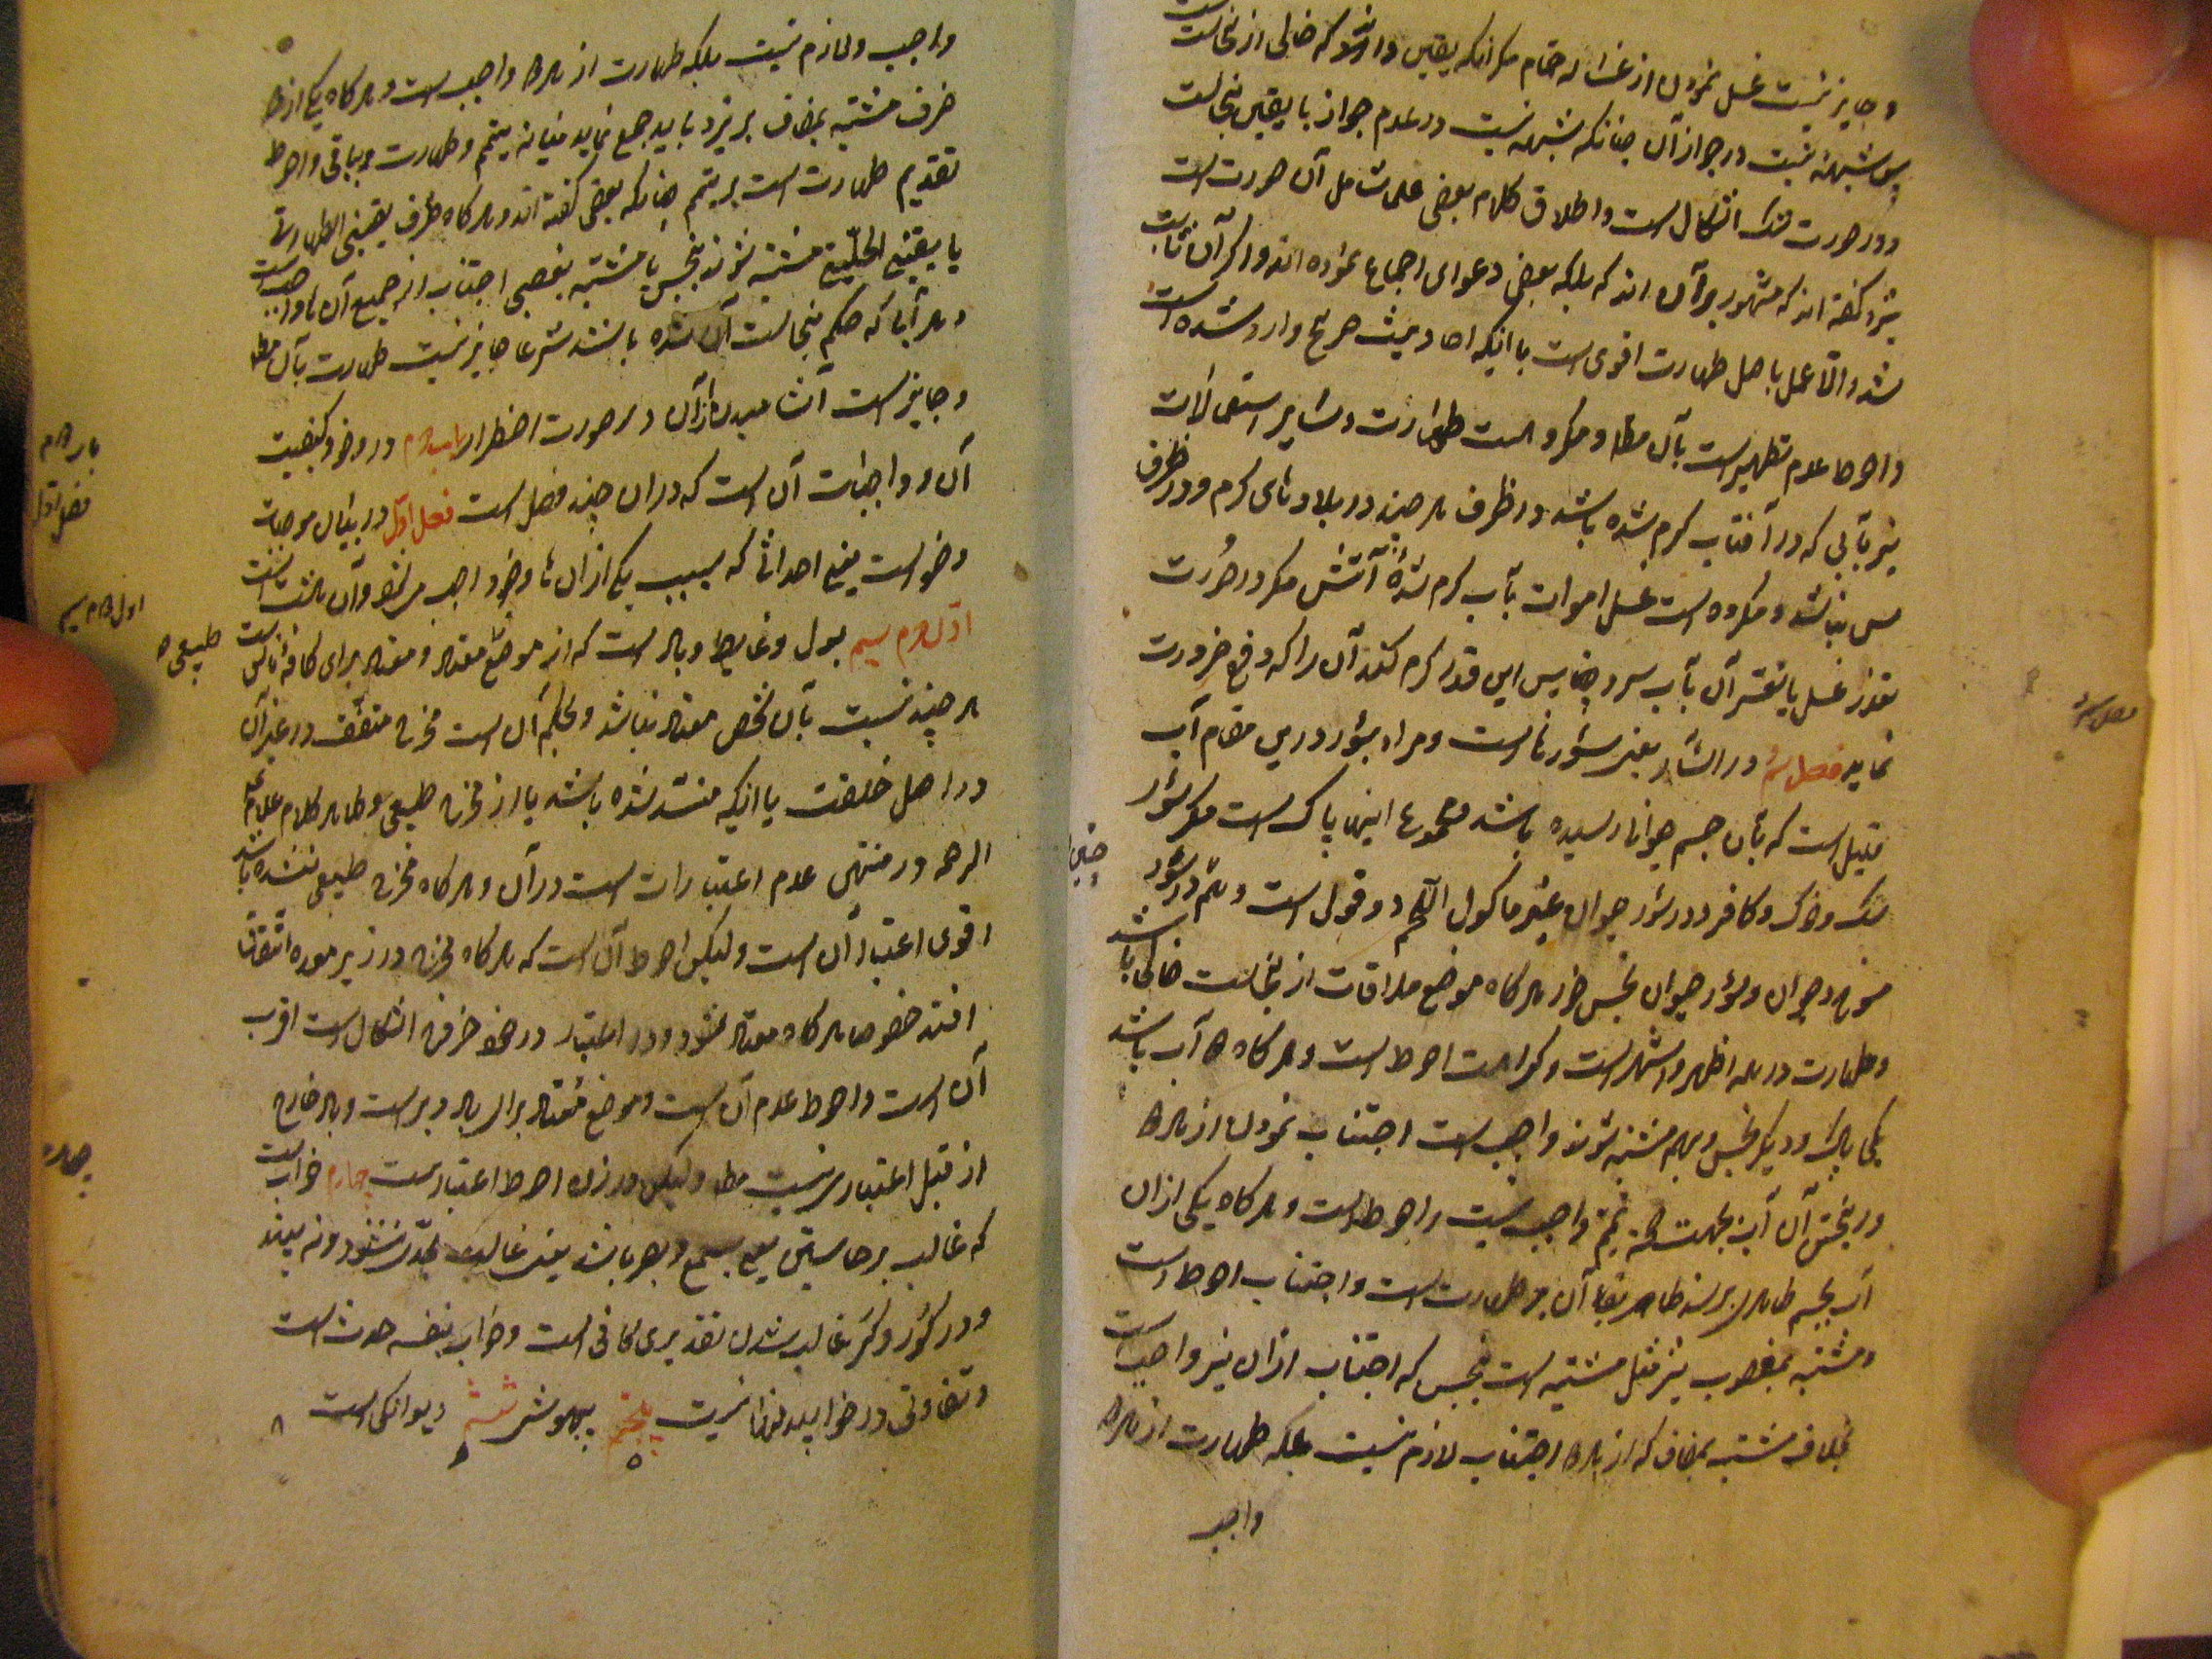 و جایز نیست غسل نمودن از غساله حمام مگر آنکه یقین داشته باشد که خالی از نجاست است
پس شبهه نیست در جواز آن چنانکه شبهه نیست در عدم جواز با یقین نجاست
و در صورت شک اشکال است و اطلاق کلام بعضی علی شامل آن صورت است
نیز و گفته اند که مشهور بر آن اند که بلکه بعضی دعوای اجماع نموده اند و اگر آن ثابت
شد و الّا عمل باصل طهارت اقوی است با آنکه احادیث صریح وارد شده است
و احوط عدم تطهیر است بآن مطلقا و مکروه است طهارت و سایر استعمالات
نیز بآبی که در آفتاب گرم شده باشد در ظرف هر چند در بلاد نمای گرم و در ظرف
مس نباشد و مکروه است غسل اموات بآب گرم شدهٔ آتش مگر در صورت
تعذر غسل یا تعسر آن بآب سرد چنانچه پس این قدر گرم کنند آن را که دفع ضرورت
نماید فصل سیم در اسئار یعنی سؤرها است و مراد بسؤر در این مقام آب
قلیل است که بآن جسم حیوانا رسیده باشد و مجموع اینها پاک است مگر سؤر
سگ و خوک و کافر و در سؤر حیوان غیر ماکول اللحم دو قول است و هم در سؤر
حیوان و سؤر حیوان نجس خوار هرگاه موضع ملاقات از نجاست خالی باشد
و طهارت در همه اظهر و اشهر است و کراهت احوط است و هرگاه دو آب باشد
یکی پاک و دیگر نجس و بهم مشتبه شوند واجب است اجتناب نمودن از هر دو
و ریختن آن آب بجهت صحة تیمّم واجب نیست و احوط است و هرگاه یکی از آن
آب بجسم طاهر برسد ظاهر بقا آن بر طهارت است و اجتناب احوط است
و مشتبه بمغصوب نیز مثل مشتبه است بنجس که اجتناب از آن نیز واجب است
بخلاف مشتبه بمضاف که از هر دو اجتناب لازم نیست بلکه طهارت از هر دو
واجب
واجب و لازم نیست بلکه طهارت از هر دو واجب است و هرگاه یکی از دو
ظرف مشتبه بمضاف بریزد باید جمع نماید میانه تیمّم و طهارت بباقی و احوط
تقدیم طهارت است بر تیمّم چنانکه بعضی گفته اند و هرگاه ظرف یقینی الطهارة
یا یقینی الحلّیة مشتبه شوند بنجس یا مشتبه بغصبی اجتناب از جمیع آن ها واجب است
و هر آبی که حکم بنجاست آن شده باشد شرعا جایز نیست طهارت بآن مطلقا
و جایز است آشامیدن از آن در صورت اضطرار باب دوم در وضو و کیفیت
آن و واجبات آن است که در آن چند فصل است فصل اوّل در بیان موجبات
وضو است یعنی احداثی که بسبب یکی از آن ها وضو واجب میشود و آن هشت است
اوّل دوم سیم بول و غایط و باد است که از موضع معتاد و معتاد برای کافهٔ ناس است
هر چند نسبت بآن شخص معتاد نباشد و بحکم آن است مخرج متفق در غیر آن
در اصل خلقت یا آنکه منسد شده باشد یا از مخرج طبیعی و ظاهر کلام علامه علیه
الرحمه در منتهی عدم اعتبارات است در آن و هرگاه مخرج طبیعی نشده باشد
اقوی اعتبار آن است و لیکن احوط آن است که هرگاه مخرج در زیر معده اتفاق
افتد خصوصا هرگاه معتاد شود و در اعتبار در خرق اشکال است اقرب
آن است و احوط عدم آن است و موضع معتاد برای باد دبر است و باد خارج
از قبل اعتباری نیست مطلقا و لیکن در زن احوط اعتبار است چهارم خواب است
که غالب بر حاستین یعنی سمع و بصر باشد یعنی غالب بحدی نشنود و نه بیند
و در کور و کر غالب شدن تقدیری کافی است و خواب بنفسه حدث است
و تفاوتی در خوابیدنها نیست پنجم بیهوشی ششم دیوانگی است
باب دوم
فصل اوّل
اول دوم سیم
طبیعی
چهارم
فصل سیم